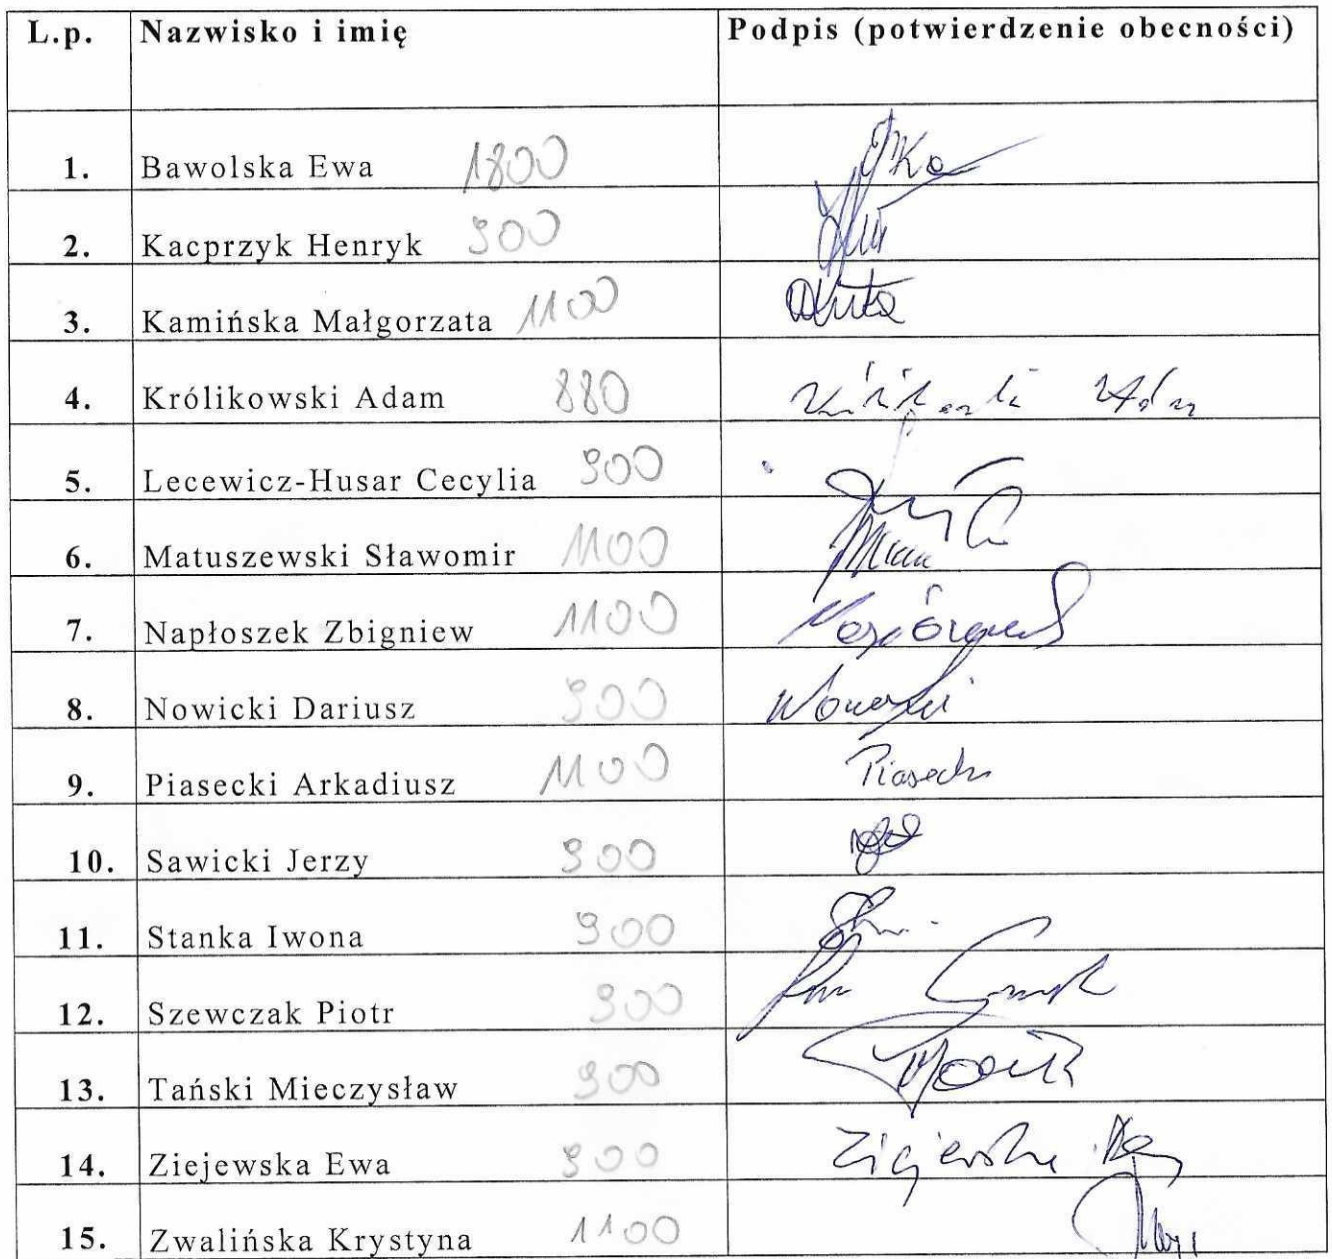 L.p. Nazwisko i imię Podpis (potwierdzenie obecności)
1. Bawolska Ewa 1800
2. Kacprzyk Henryk 900
3. Kamińska Małgorzata 1100
4. Królikowski Adam 880
5. Lecewicz-Husar Cecylia 900
6. Matuszewski Sławomir 1100
7. Napłoszek Zbigniew 1100
8. Nowicki Dariusz 900
9. Piasecki Arkadiusz 1100 Piasecki
10. Sawicki Jerzy 900
11. Stanka Iwona 900
12. Szewczak Piotr 900
13. Tański Mieczysław 900
14. Ziejewska Ewa 900 Ziejewska
15. Zwalińska Krystyna 1100